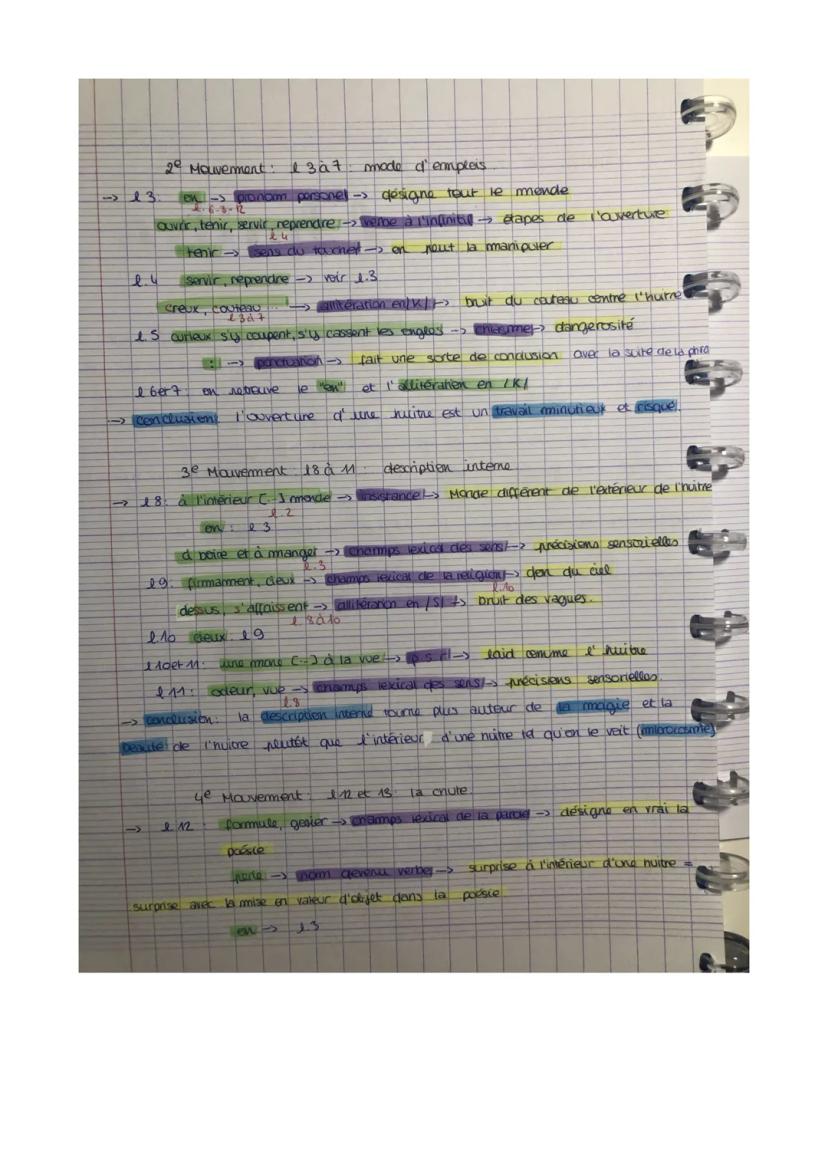 2e Mouvement : l 3 à 7 : mode d'emplois
-> l 3 : on -> pronom personel -> désigne tout le monde
l. 6-8-12
ouvrir, tenir, servir, reprendre -> verbe à l'infinitif -> étapes de l'ouverture
l 4
tenir -> sens du toucher -> on peut la manipuler
l. 4 servir, reprendre -> voir l.3
creux, couteau ... -> allitération en /K/ -> bruit du couteau contre l'huitre
l 3 à 7
l. 5 curieux s'y coupent, s'y cassent les ongles -> chiasme -> dangerosité
: -> ponctuation -> fait une sorte de conclusion avec la suite de la phra
l 6 et 7 : on retrouve le "on" et l'allitération en /K/
-> conclusion : l'ouverture d'une huitre est un travail minutieux et risqué.
3e Mouvement : l 8 à 11 : description interne
-> l 8 : à l'intérieur [...] monde -> insistance -> Monde différent de l'extérieur de l'huitre
l. 2
on : l 3
à boire et à manger -> champs lexical des sens -> précisions sensorielles
l. 3
l 9 : firmamment, cieux -> champs lexical de la religion -> don du ciel
l. 10
dessus, s'affaissent -> allitération en /S/ -> bruit des vagues.
l 8 à 10
l. 10 cieux : l 9
l 10 et 11 : une mare [...] à la vue -> p.s.r -> laid comme l'huitre
l 11 : odeur, vue -> champs lexical des sens -> précisions sensorielles.
l. 8
-> conclusion : la description interne tourne plus autour de la magie et la
beauté de l'huitre plutôt que l'intérieur d'une huitre tel qu'on le voit (microcosme)
4e Mouvement : l 12 et 13 : la chute
-> l 12 : formule, gosier -> champs lexical de la parole -> désigne en vrai la
poésie
perle -> nom devenu verbe -> surprise à l'intérieur d'une huitre =
surprise avec la mise en valeur d'objet dans la poésie
on -> l 3